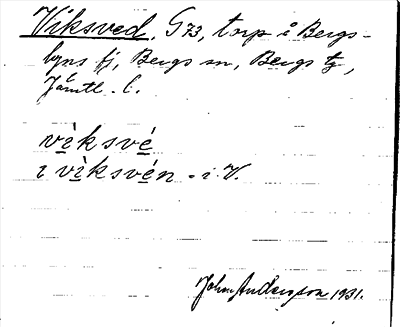 Viksved, G 73, torp å Bergs-
byns fj, Bergs sn, Bergs tg,
Jämtl. l.
vìksvé
i vìksvén = i V.
John Anderson 1931.